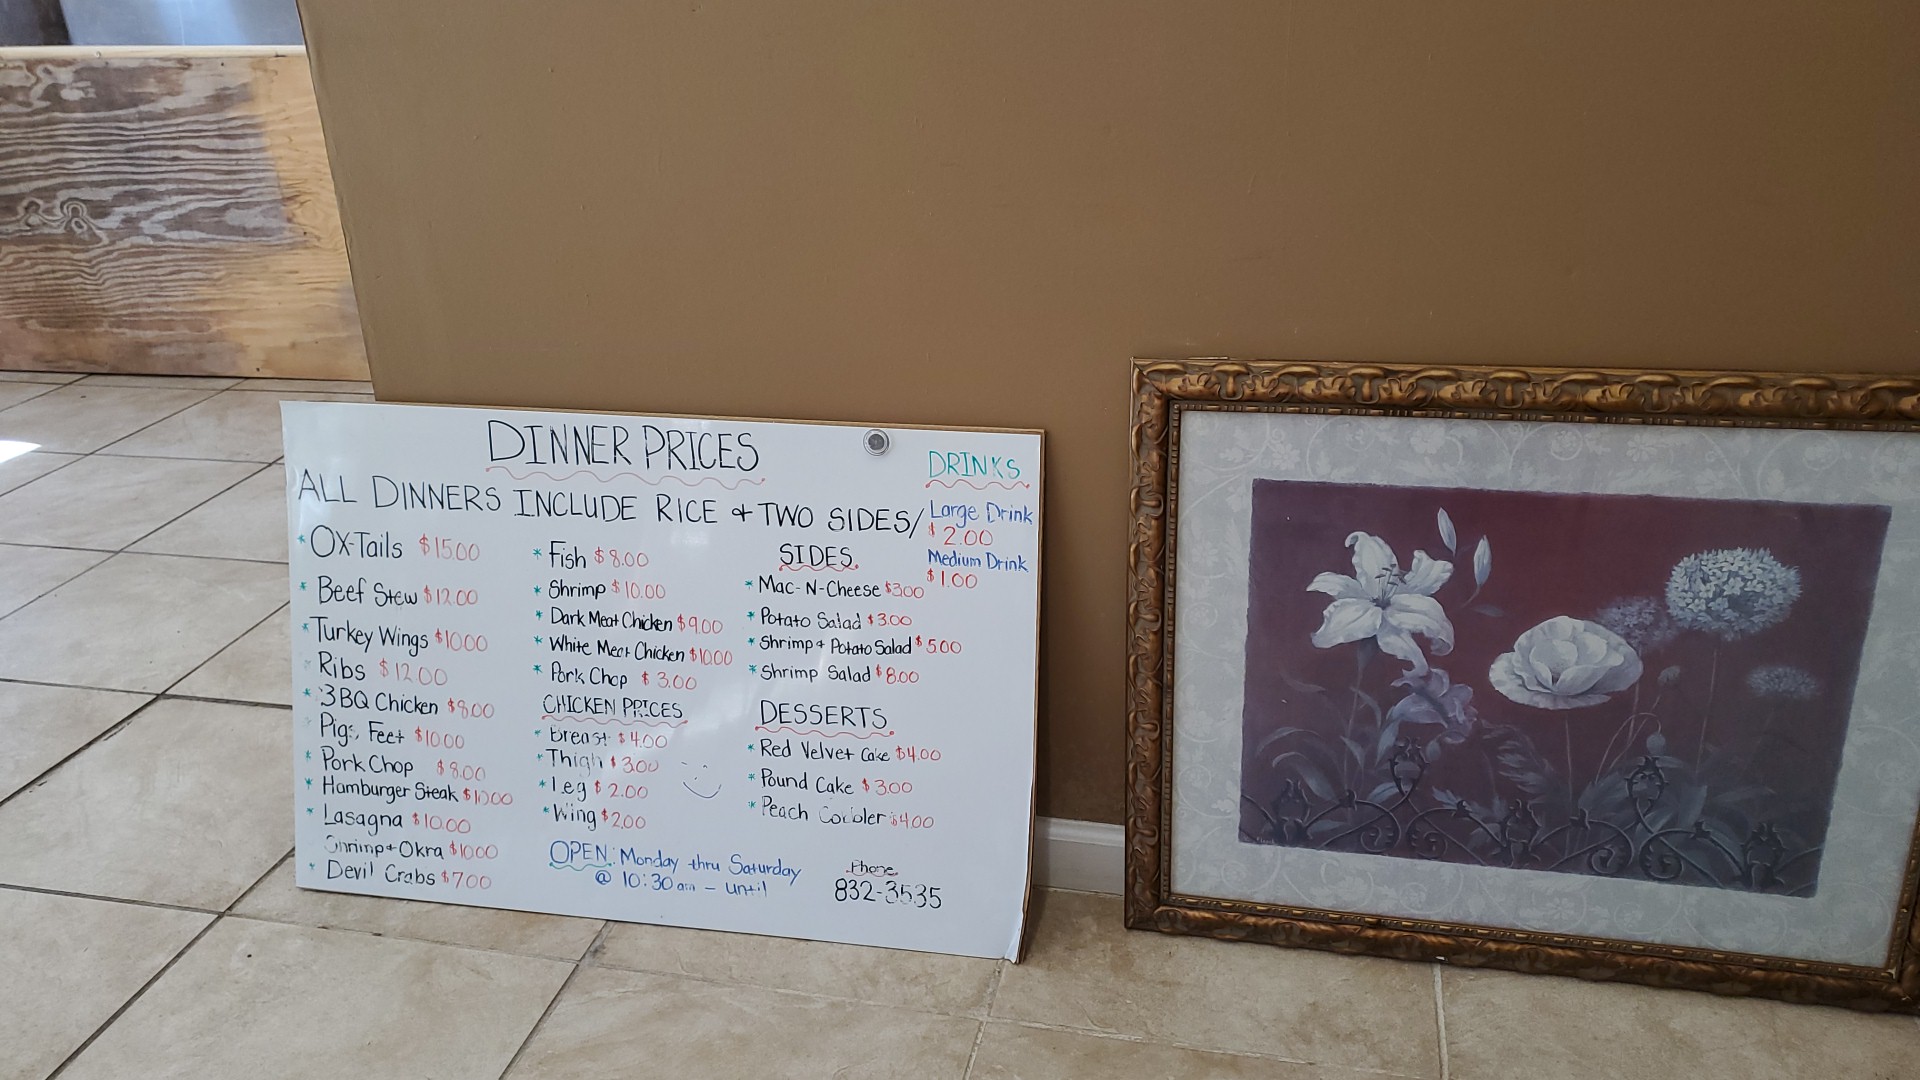 DINNER PRICES
ALL DINNERS INCLUDE RICE + TWO SIDES/
* Ox-Tails $15.00
* Beef Stew $12.00
* Turkey Wings $10.00
* Ribs $12.00
* BBQ Chicken $8.00
* Pigs Feet $10.00
* Pork Chop $8.00
* Hamburger Steak $10.00
* Lasagna $10.00
Shrimp + Okra $10.00
* Devil Crabs $7.00
* Fish $8.00
* Shrimp $10.00
* Dark Meat Chicken $9.00
* White Meat Chicken $10.00
* Pork Chop $3.00
CHICKEN PRICES
* Breast $4.00
* Thigh $3.00
* Leg $2.00
* Wing $2.00
OPEN: Monday thru Saturday
@ 10:30am - until
SIDES
* Mac-N-Cheese $3.00
* Potato Salad $3.00
* Shrimp + Potato Salad $5.00
* Shrimp Salad $8.00
DESSERTS
* Red Velvet Cake $4.00
* Pound Cake $3.00
* Peach Cobbler $4.00
Phone
832-3535
DRINKS
Large Drink
$2.00
Medium Drink
$1.00